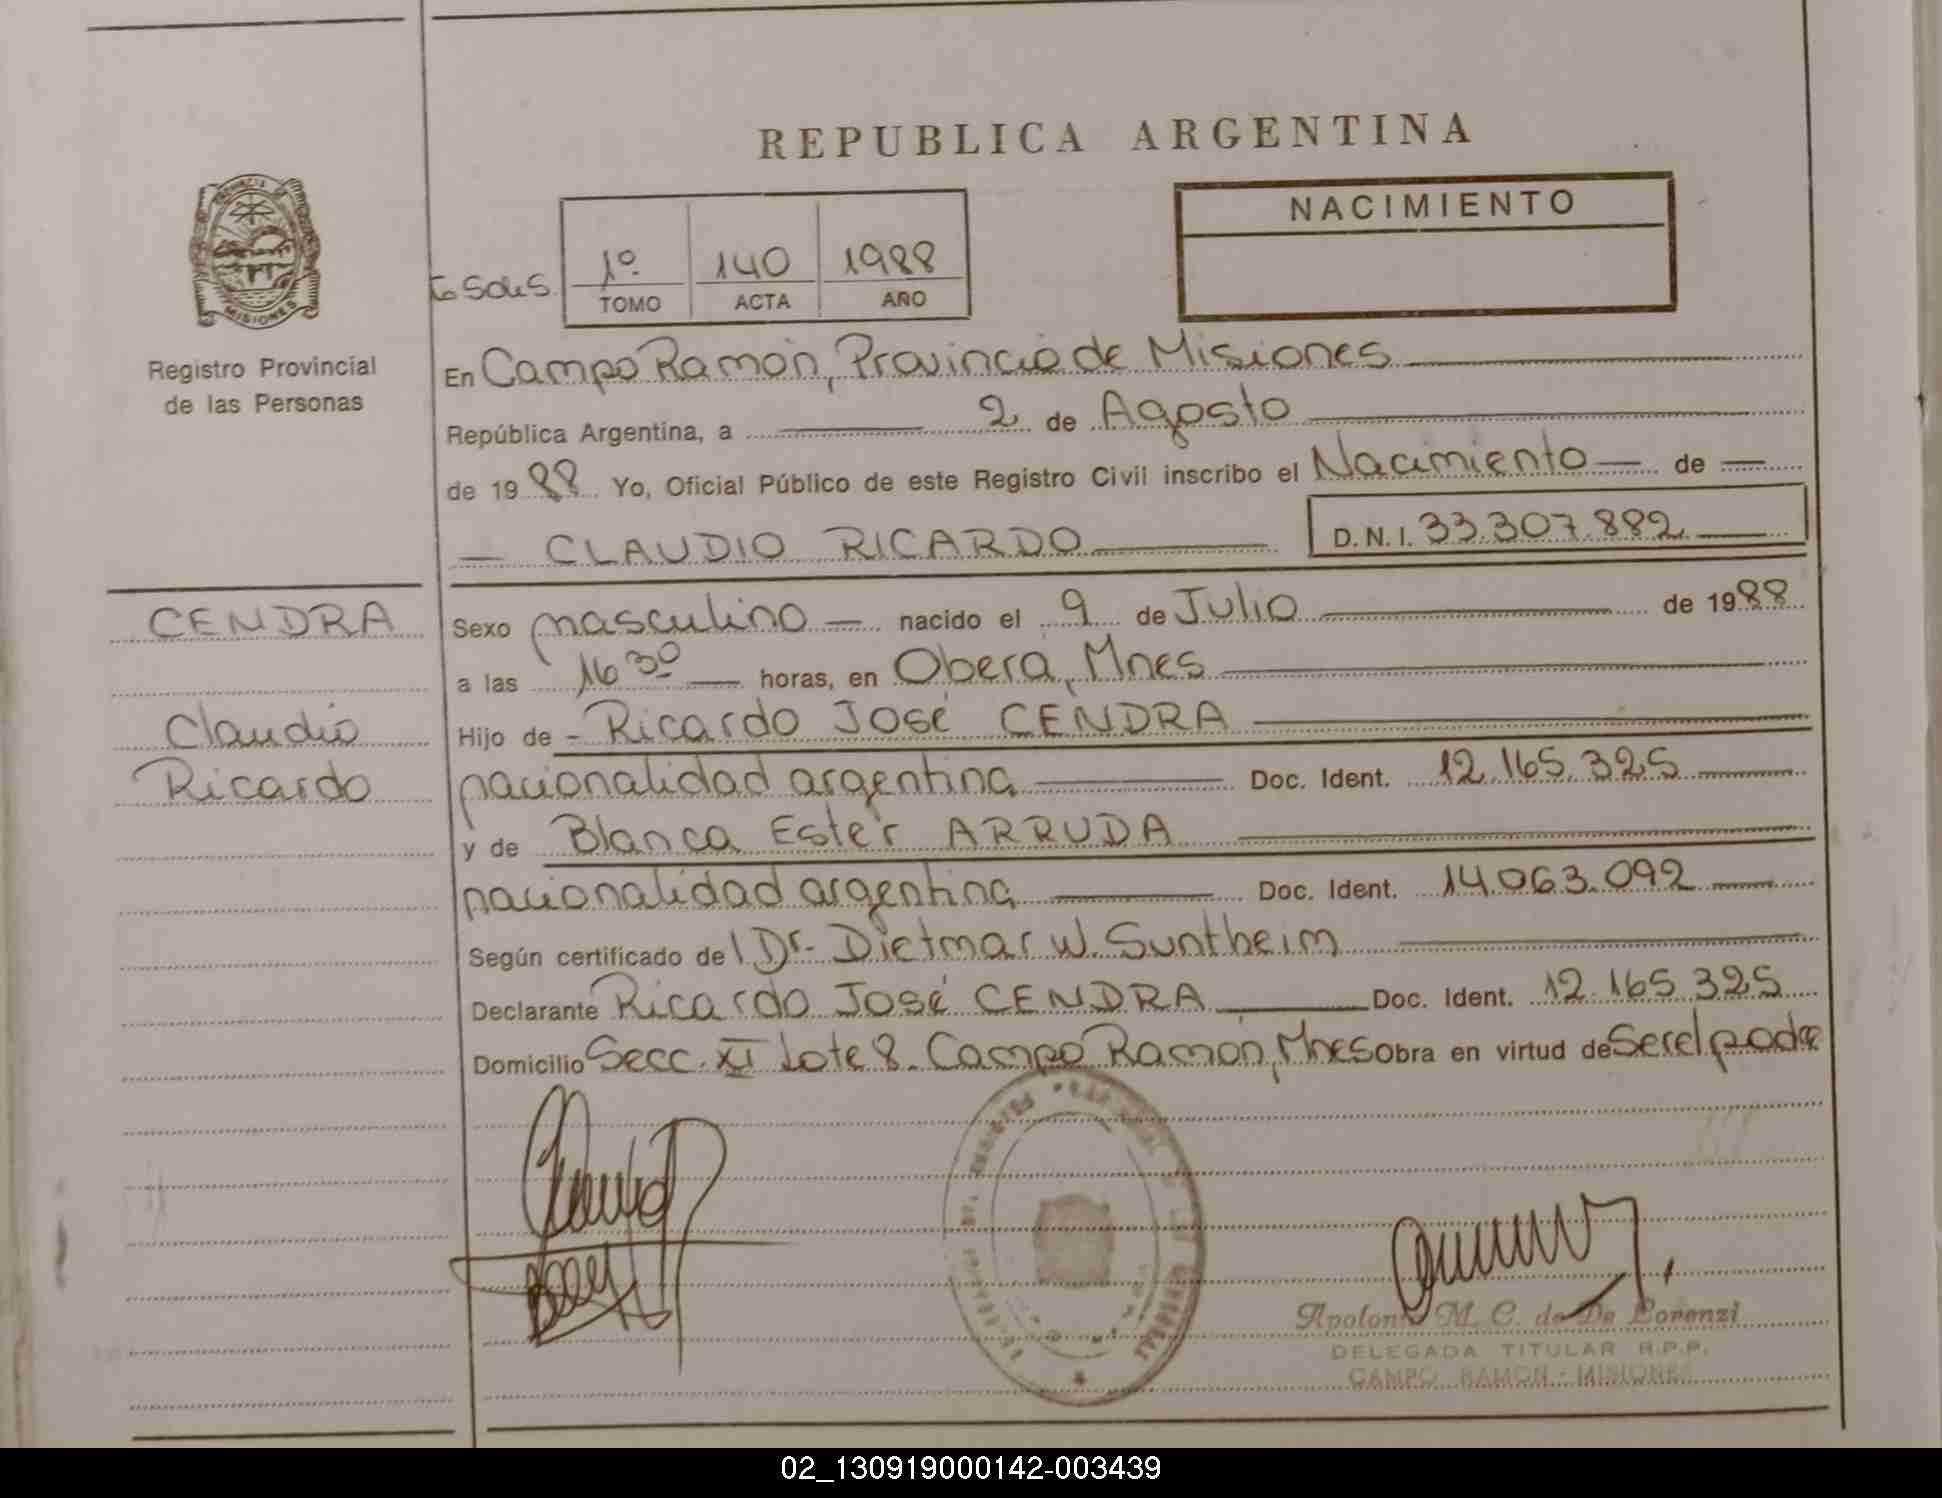 REPUBLICA ARGENTINA
PROVINCIA
MISIONES
Registro Provincial
de las Personas
NACIMIENTO
1º 140 1988
TOMO ACTA AÑO
En Campo Ramón, Provincia de Misiones
República Argentina, a 2 de Agosto
de 1988 Yo, Oficial Público de este Registro Civil inscribo el Nacimiento de
CLAUDIO RICARDO D.N.I. 33.307.882
CENDRA
Claudio
Ricardo
Sexo masculino nacido el 9 de Julio de 1988
a las 16 30 horas, en Obera, Mnes
Hijo de Ricardo José CENDRA
nacionalidad argentina Doc. Ident. 12.165.325
y de Blanca Ester ARRUDA
nacionalidad argentina Doc. Ident. 14.063.092
Según certificado del Dr. Dietmar W. Suntheim
Declarante Ricardo José CENDRA Doc. Ident. 12.165.325
Domicilio Secc. XI Lote 8. Campo Ramón, Mnes Obra en virtud de Ser el padre
M. C. de De Lorenzi
DELEGADA TITULAR R.P.P.
CAMPO RAMON - MISIONES
02_130919000142-003439